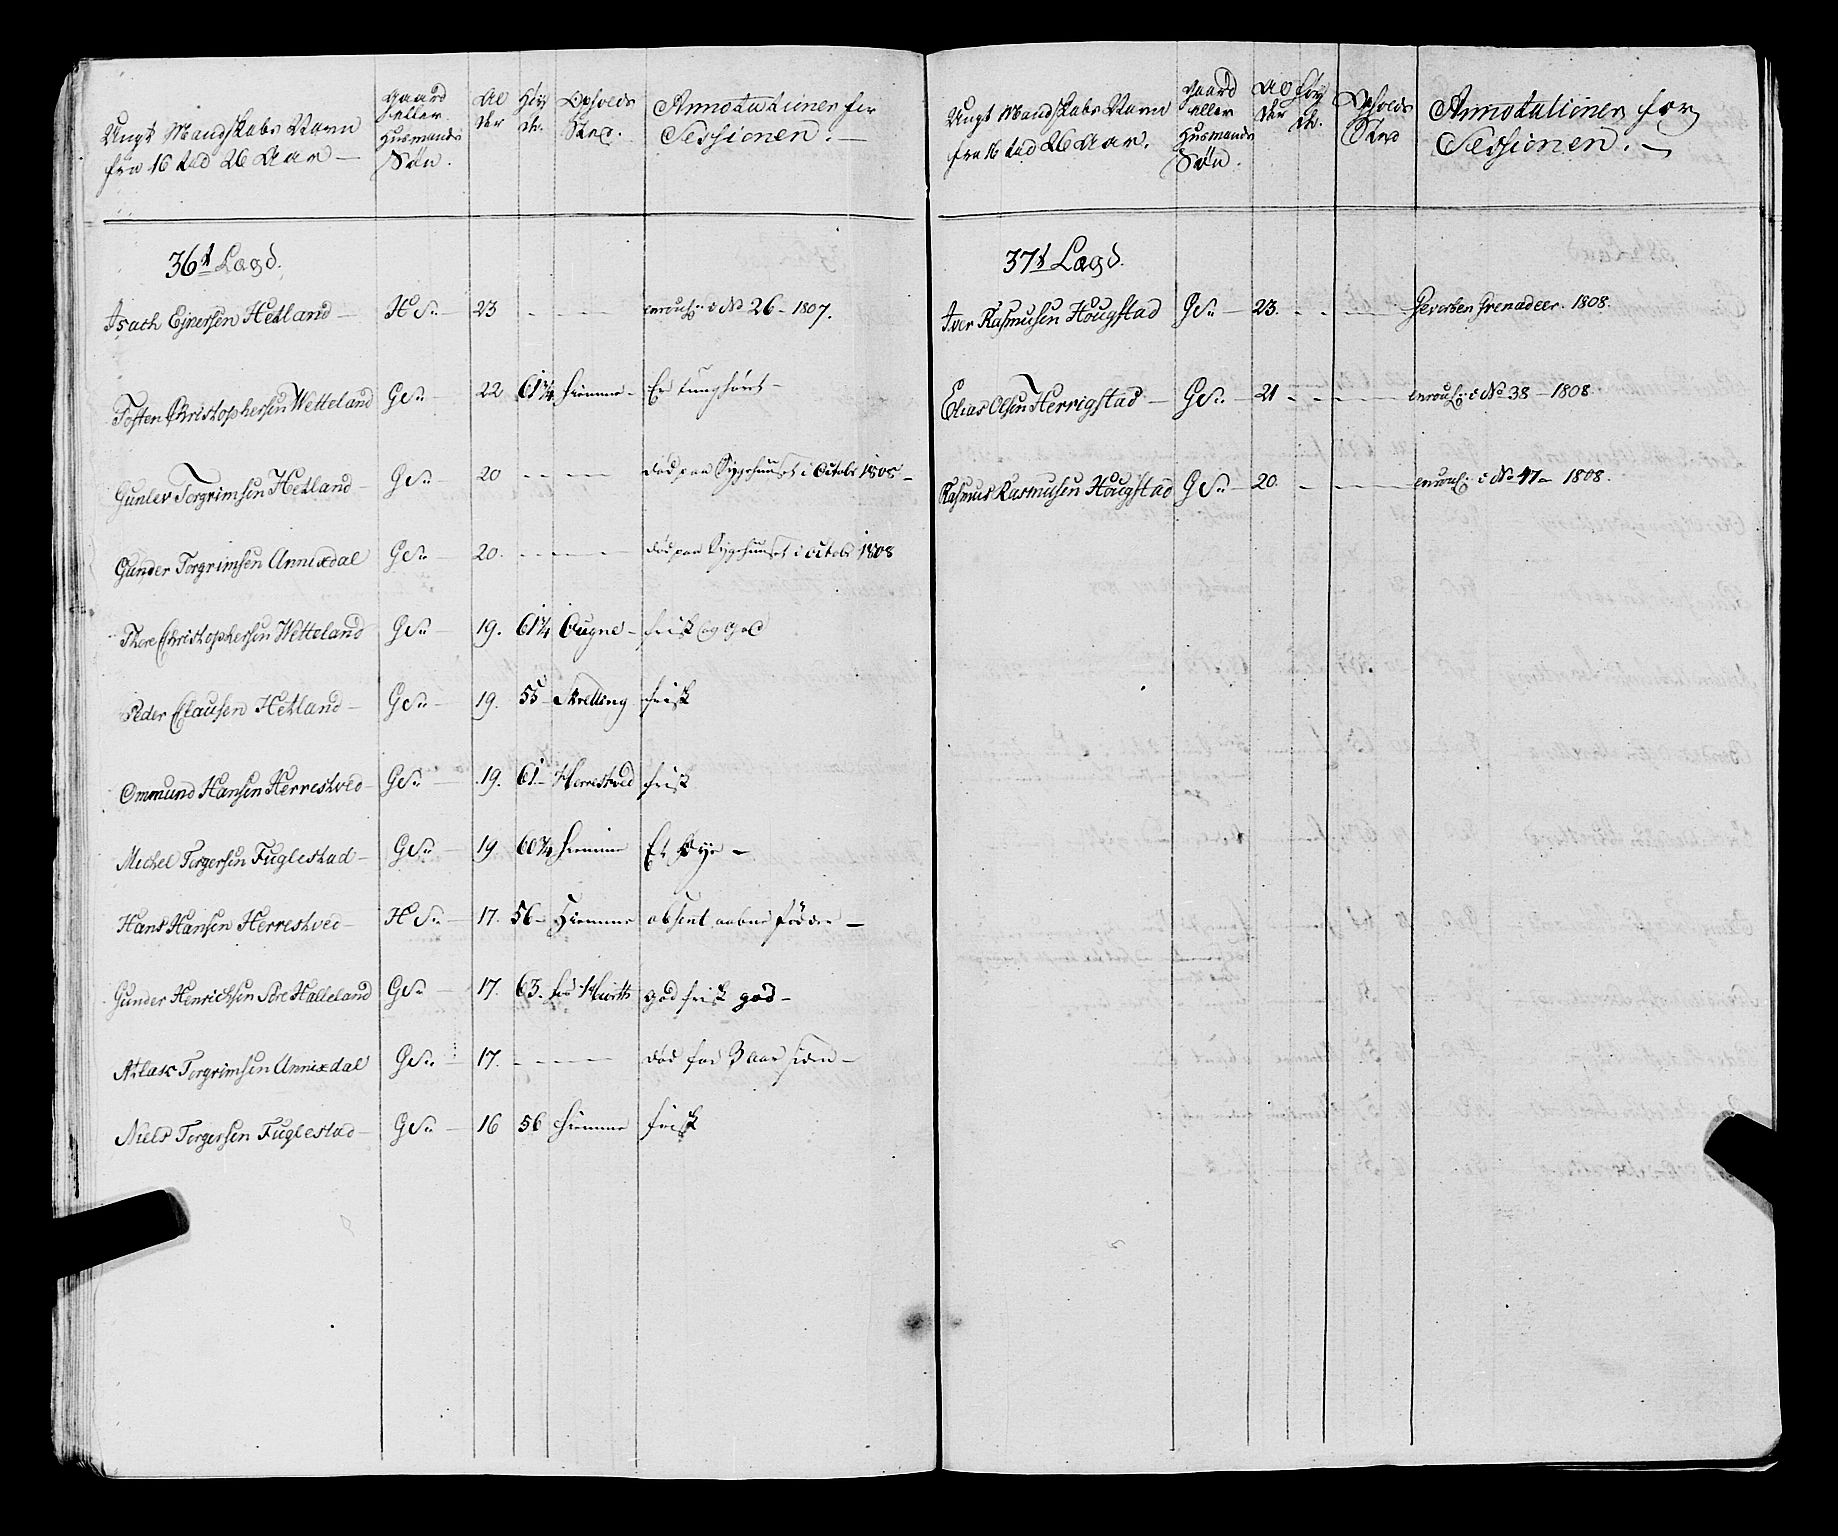 Ungt Mandskabs Navn
fra 16 til 26 Aar —
Gaard
eller
Husmands
Søn.
Al
der
Høy
de.
Opholds
Sted.
Annotationer for
Sessionen. —
36te Lægd.
Isach Ejnersen Hetland — H Sn — 23 - - - enroul: i No 26 - 1807.
Tosten Christophersen Wetteland G Sn — 22 61 3/4 hiemme - Er tunghørt -
Gunler Torgrimsen Hetland — G Sn — 20 - - - død paa Sygehuuset i Octobr 1808 -
Gunder Torgrimsen Annixdal G Sn — 20. - - - død paa Sygehuuset i Octobr 1808
Thore Christophersen Wetteland G Sn — 19. 61 1/4 Ougne - frisk og god
Peder Clausen Hetland — G Sn — 19. 55 - Skretting frisk
Ommund Hansen Herrestved — G Sn — 19. 61 - Herrestved frisk
Michel Torgersen Fuglestad — G Sn — 19 60 3/4 hiemme Et Øye —
Hans Hansen Herrestved — H Sn — 17. 56 - Hiemme absent aabne fødder —
Gunder Henrichsen Store Halleland G Sn — 17. 63. god frisk god -
Atlak Torgrimsen Annixdal G Sn — 17. - - - død for 3 aar siden —
Niels Torgersen Fuglestad — G Sn — 16 56 hiemme frisk
Ungt Mandskabs Navn
fra 16 til 26 Aar.
Gaard
eller
Husmands
Søn.
Al
der
Høy
de.
Opholds
Sted
Annotationer for
Sessionen. —
37te Lægd.
Iver Rasmusen Hougstad G Sn — 23. - - - Gevorben Grenadeer. 1808.
Elias Olsen Herrigstad — G Sn — 21 - - - enroul: i No 38 — 1808.
Rasmus Rasmusen Hougstad G Sn — 20. - - - enroul: i No 47 — 1808.